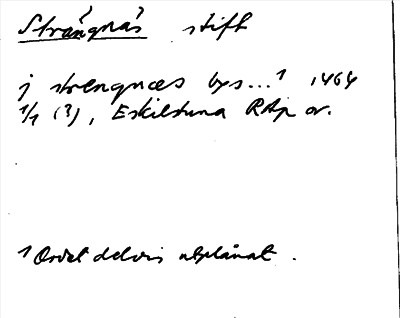 Strängnäs stift
j strengnæs bys...¹ 1464
1/1 (?), Eskilstuna RAp or.
¹ Ordet delvis utplånat.